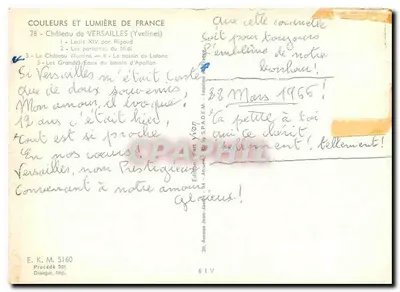 COULEURS ET LUMIÈRE DE FRANCE
78 - Château de VERSAILLES (Yvelines)
1 - Louis XIV par Rigaud
2 - Les parterres du Midi
3 - Le Château illuminé - 4 - Le bassin de Latone
5 - Les Grandes Eaux du bassin d'Apollon
Si Versailles m'était conté
que de doux souvenirs,
Mon amour, il évoque!
12 ans c'était hier,
tout est si proche
En nos cœurs
Versailles, nom Prestigieux
Convenant à notre amour
Glorieux!
que cette journée
soit pour toujours
l'emblème de notre
bonheur!
28 Mars 1966!
Ta petite à toi
qui te chérit
tellement!
E. K. M. 5160
Procédé
Offset, Imp.
6 I V
CPAPHIL